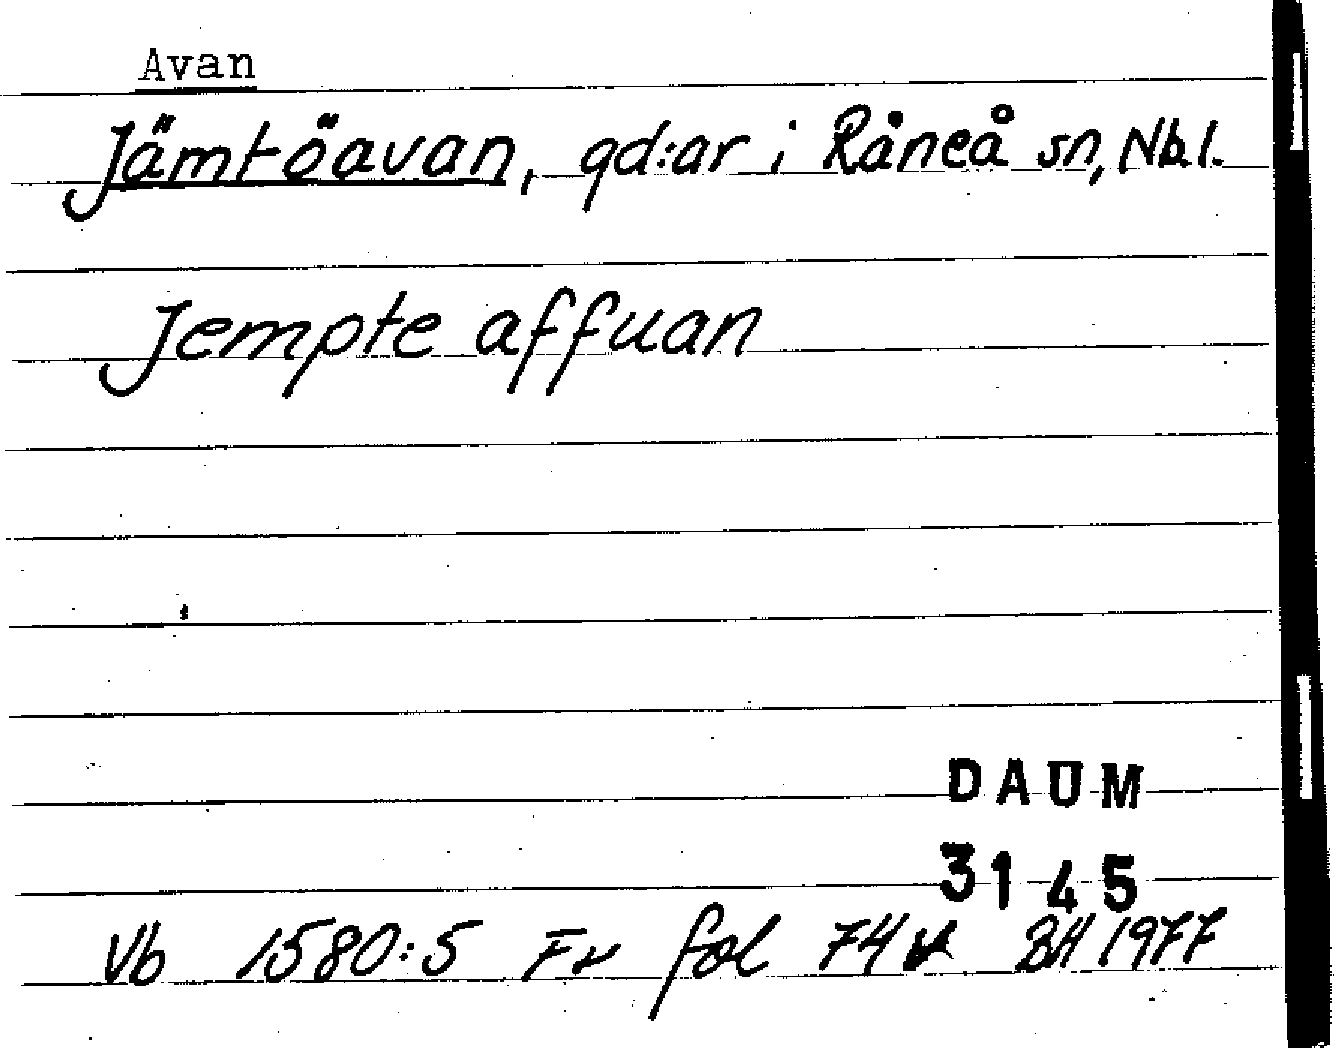 Avan
Jämtöavan, gd:ar i Råneå sn, Nb.l.
Jempte affuan
DAUM
3145
Vb 1580:5 Fr fol 74v BH 1977